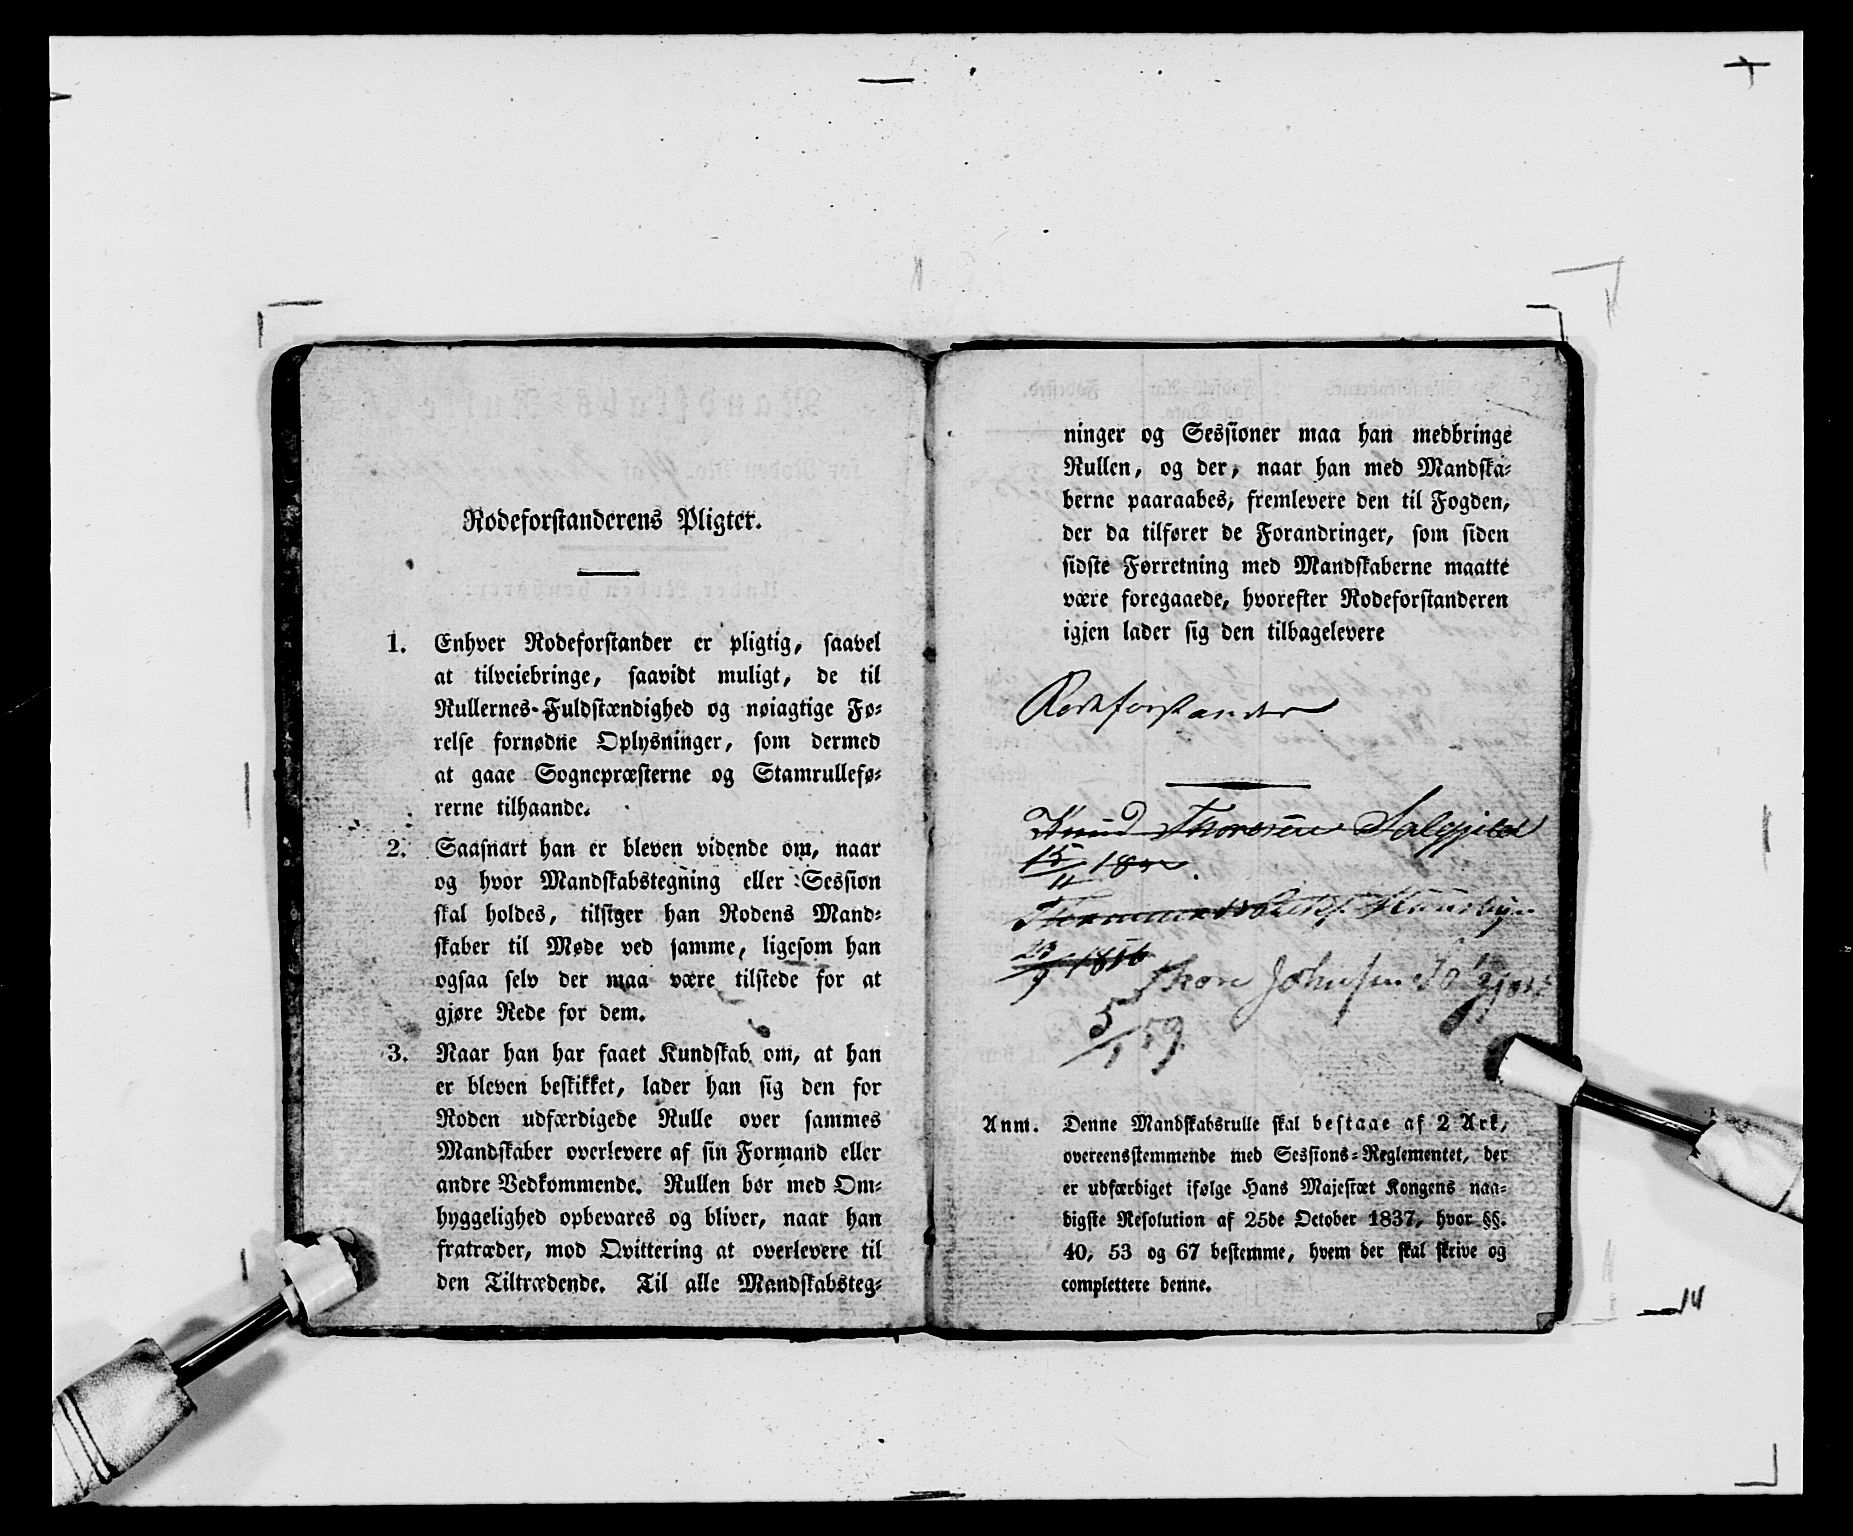 Rodeforstanderens Pligter.
1. Enhver Rodeforstander er pligtig, saavel
at tilveiebringe, saavidt muligt, de til
Rullernes Fuldstændighed og nøiagtige Fø-
relse fornødne Oplysninger, som dermed
at gaae Sognepræsterne og Stamrullefø-
rerne tilhaande.
2. Saasnart han er bleven vidende om, naar
og hvor Mandskabstegning eller Session
skal holdes, tilsiger han Rodens Mand-
skaber til Møde ved samme, ligesom han
ogsaa selv der maa være tilstede for at
gjøre Rede for dem.
3. Naar han har faaet Kundskab om, at han
er bleven beskikket, lader han sig den for
Roden udfærdigede Rulle over sammes
Mandskaber overlevere af sin Formand eller
andre Vedkommende. Rullen bør med Om-
hyggelighed opbevares og bliver, naar han
fratræder, mod Qvittering at overlevere til
den Tiltrædende. Til alle Mandskabsteg-
ninger og Sessioner maa han medbringe
Rullen, og der, naar han med Mandska-
berne paaraabes, fremlevere den til Fogden,
der da tilfører de Forandringer, som siden
sidste Forretning med Mandskaberne maatte
være foregaaede, hvorefter Rodeforstanderen
igjen lader sig den tilbagelevere
Rodeforstander
Knud Thoresen
15/11
23/9 1856
Thore Johnsen
5/1 59
Anm. Denne Mandskabsrulle skal bestaae af 2 Ark,
overeensstemmende med Sessions-Reglementet, der
er udfærdiget ifølge Hans Majestæt Kongens naa-
digste Resolution af 25de October 1837, hvor §§.
40, 53 og 67 bestemme, hvem der skal skrive og
complettere denne.
14